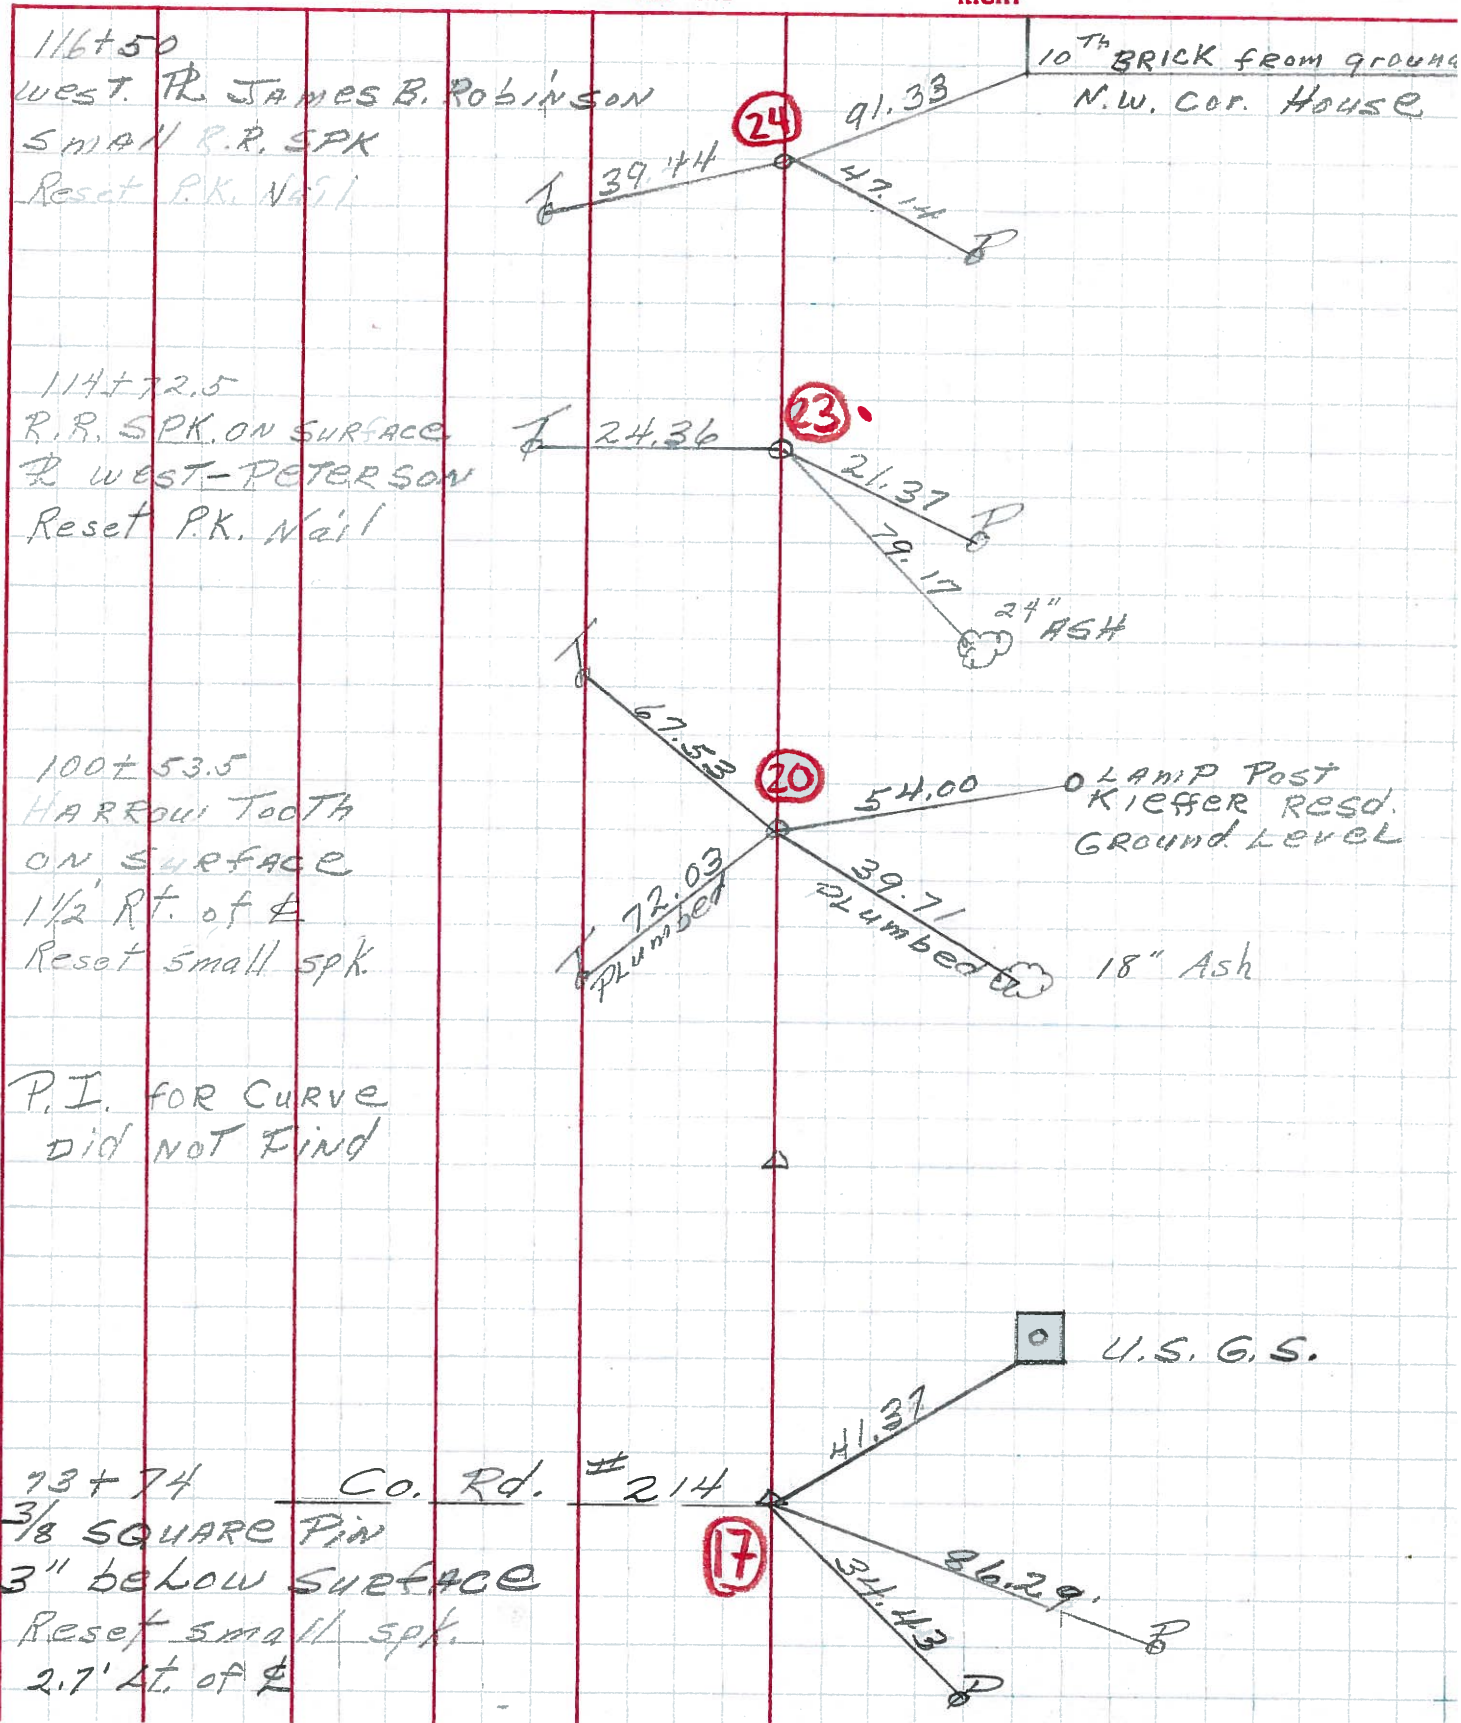 116+50
west. PL James B. Robinson
Small R.R. SPK
Reset P.K. Nail
24
10Th BRICK from ground
N.W. Cor. House
91.33
39.44
47.14
T
P
114+72.5
R.R. SPK. ON SURFACE
PL WEST-PETERSON
Reset P.K. Nail
23
T
24.36
21.37
P
79.17
24" ASH
100+53.5
HARROW TOOTH
ON SURFACE
1½' Rt. of ℄
Reset small spk.
T
67.53
20
54.00
LAMP POST
KIEFFER RESD.
GROUND LEVEL
72.03
PLUMBED
T
39.71
PLUMBED
18" Ash
P.I. FOR CURVE
Did NOT FIND
U.S.G.S.
41.37
93+74
Co. Rd. #214
3/8 SQUARE PIN
3" beLow SURFACE
Reset small spk.
2.7' Lt. of ℄
17
86.29
P
34.43
P